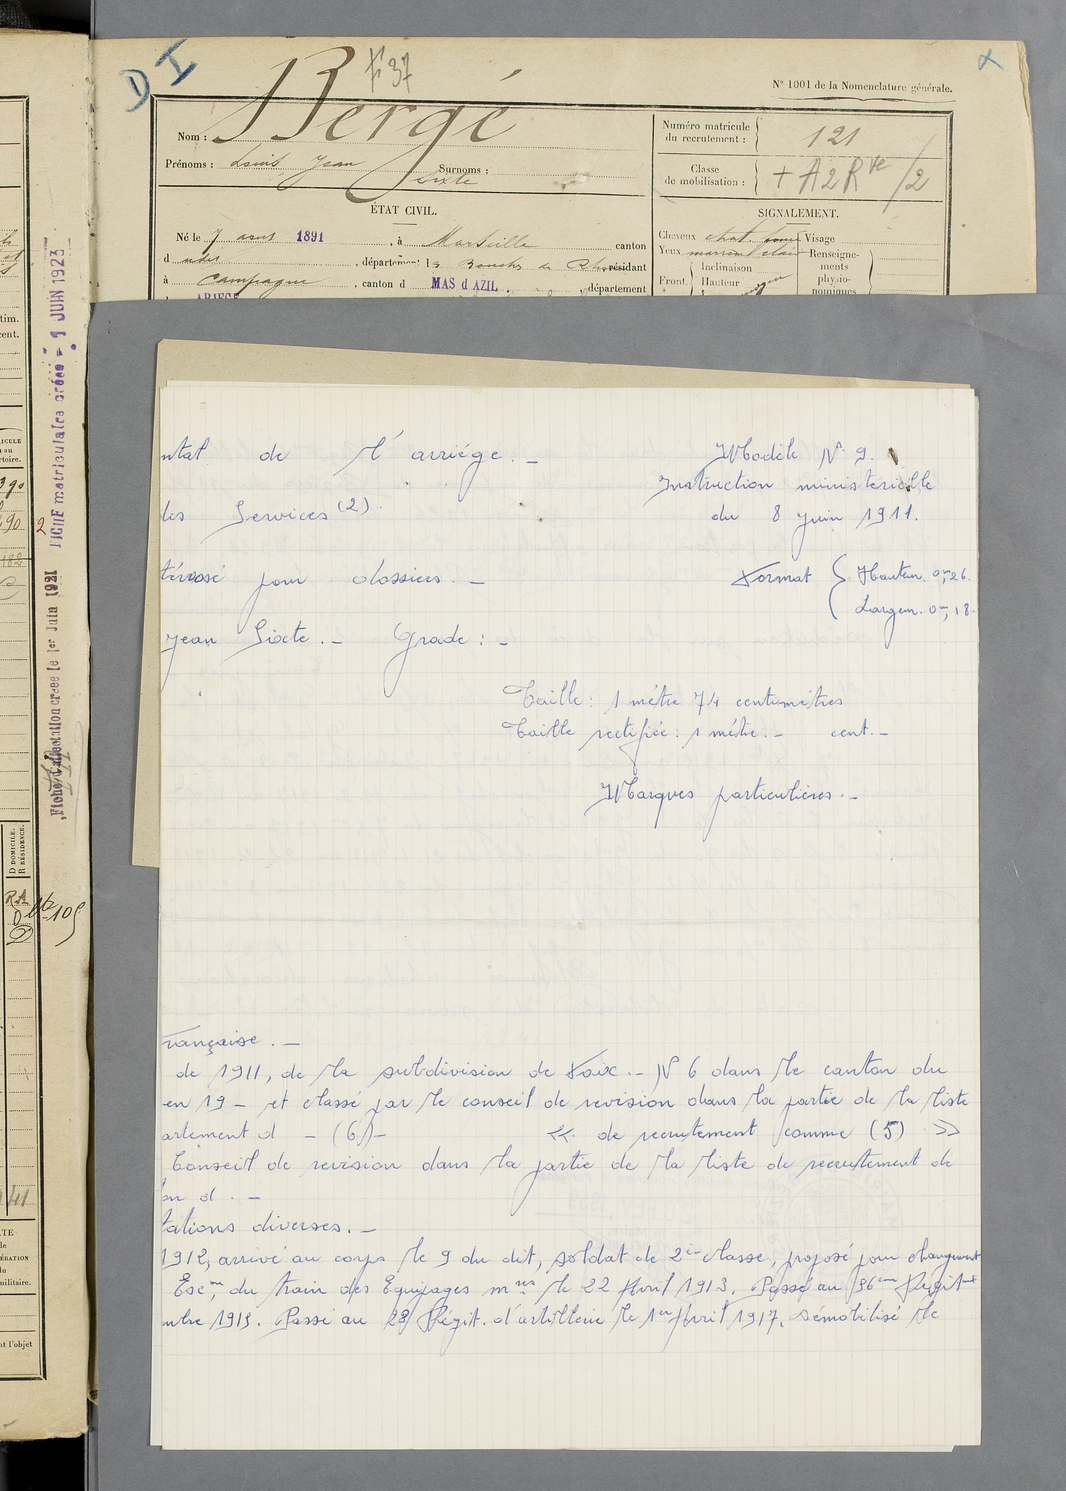 D I
F 37
X
N° 1001 de la Nomenclature générale.
Nom : Bergé
Prénoms : Louis Jean Surnoms :
Sixte
Numéro matricule
du recrutement : 121
Classe
de mobilisation : + A2Rve /2
ÉTAT CIVIL.
SIGNALEMENT.
Né le 7 avril 1891, à Marseille canton
d udit, département des Bouches du Rhône, résidant
à Campagne, canton d MAS d AZIL. département
ARIEGE
Cheveux chat. Visage
Yeux marron clair Renseigne-
Inclinaison ments
Front. Hauteur physio-
nomiques
ntal de l'arriége. –
les Services (2).
térossé pour dossiers. –
Jean Sixte. – Grade : –
Modèle N° 9.
Instruction ministerielle
du 8 juin 1911.
Format { Hauteur. 0m,26.
Largeur. 0m,18.
Taille : 1 métre 74 centimètres
Taille rectifiée : 1 métre. – cent. –
Marques particulières. –
rançaise. –
de 1911, de la subdivision de Foix. – N° 6 dans le canton du
en 19 – et classé par le conseil de revision dans la partie de la liste
artement d – (6) – « de recrutement comme (5) »
Conseil de revision dans la partie de la liste de recrutement de
on d. –
tations diverses. –
1912, arrivé au corps le 9 du dit, soldat de 2e classe, proposé pour changement
Escon du train des Equipages mres le 22 Avril 1913. Passé au 36eme Regit
mbre 1915. Passé au 28 Régit. d'artillerie le 1er Avril 1917, démobilisé le
FICHE matriculaires créée - 9 JUIN 1923
Fiche d'affectation créée le 1er Juin 1921
2
tim.
cent.
ICULE
au
rtoire.
390
D DOMICILE.
R RÉSIDENCE.
RA
D
105
41
ATE
de
du
militaire.
nt l'objet